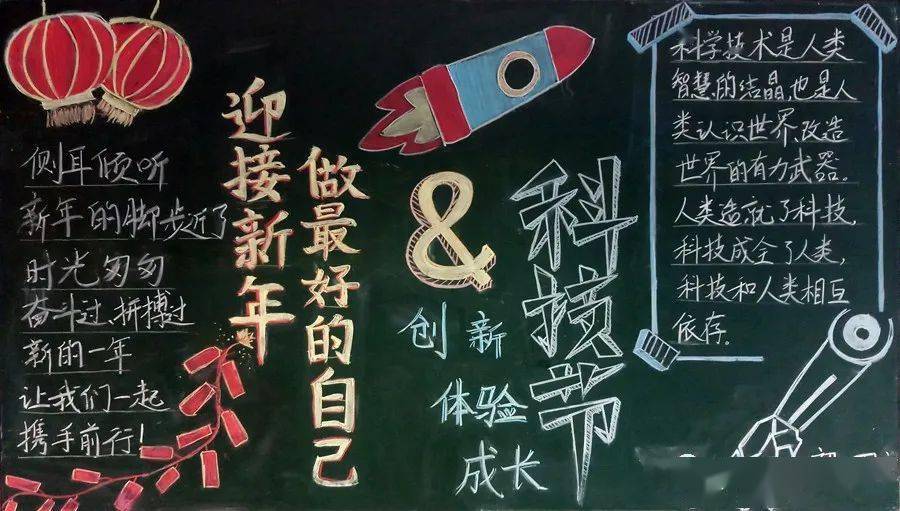 侧耳倾听
新年的脚步近了
时光匆匆
奋斗过、拼搏过
新的一年
让我们一起
携手前行!
迎接新年
做最好的自己
&
科技节
创新
体验
成长
科学技术是人类
智慧的结晶,也是人
类认识世界、改造
世界的有力武器.
人类造就了科技,
科技成全了人类,
科技和人类相互
依存.